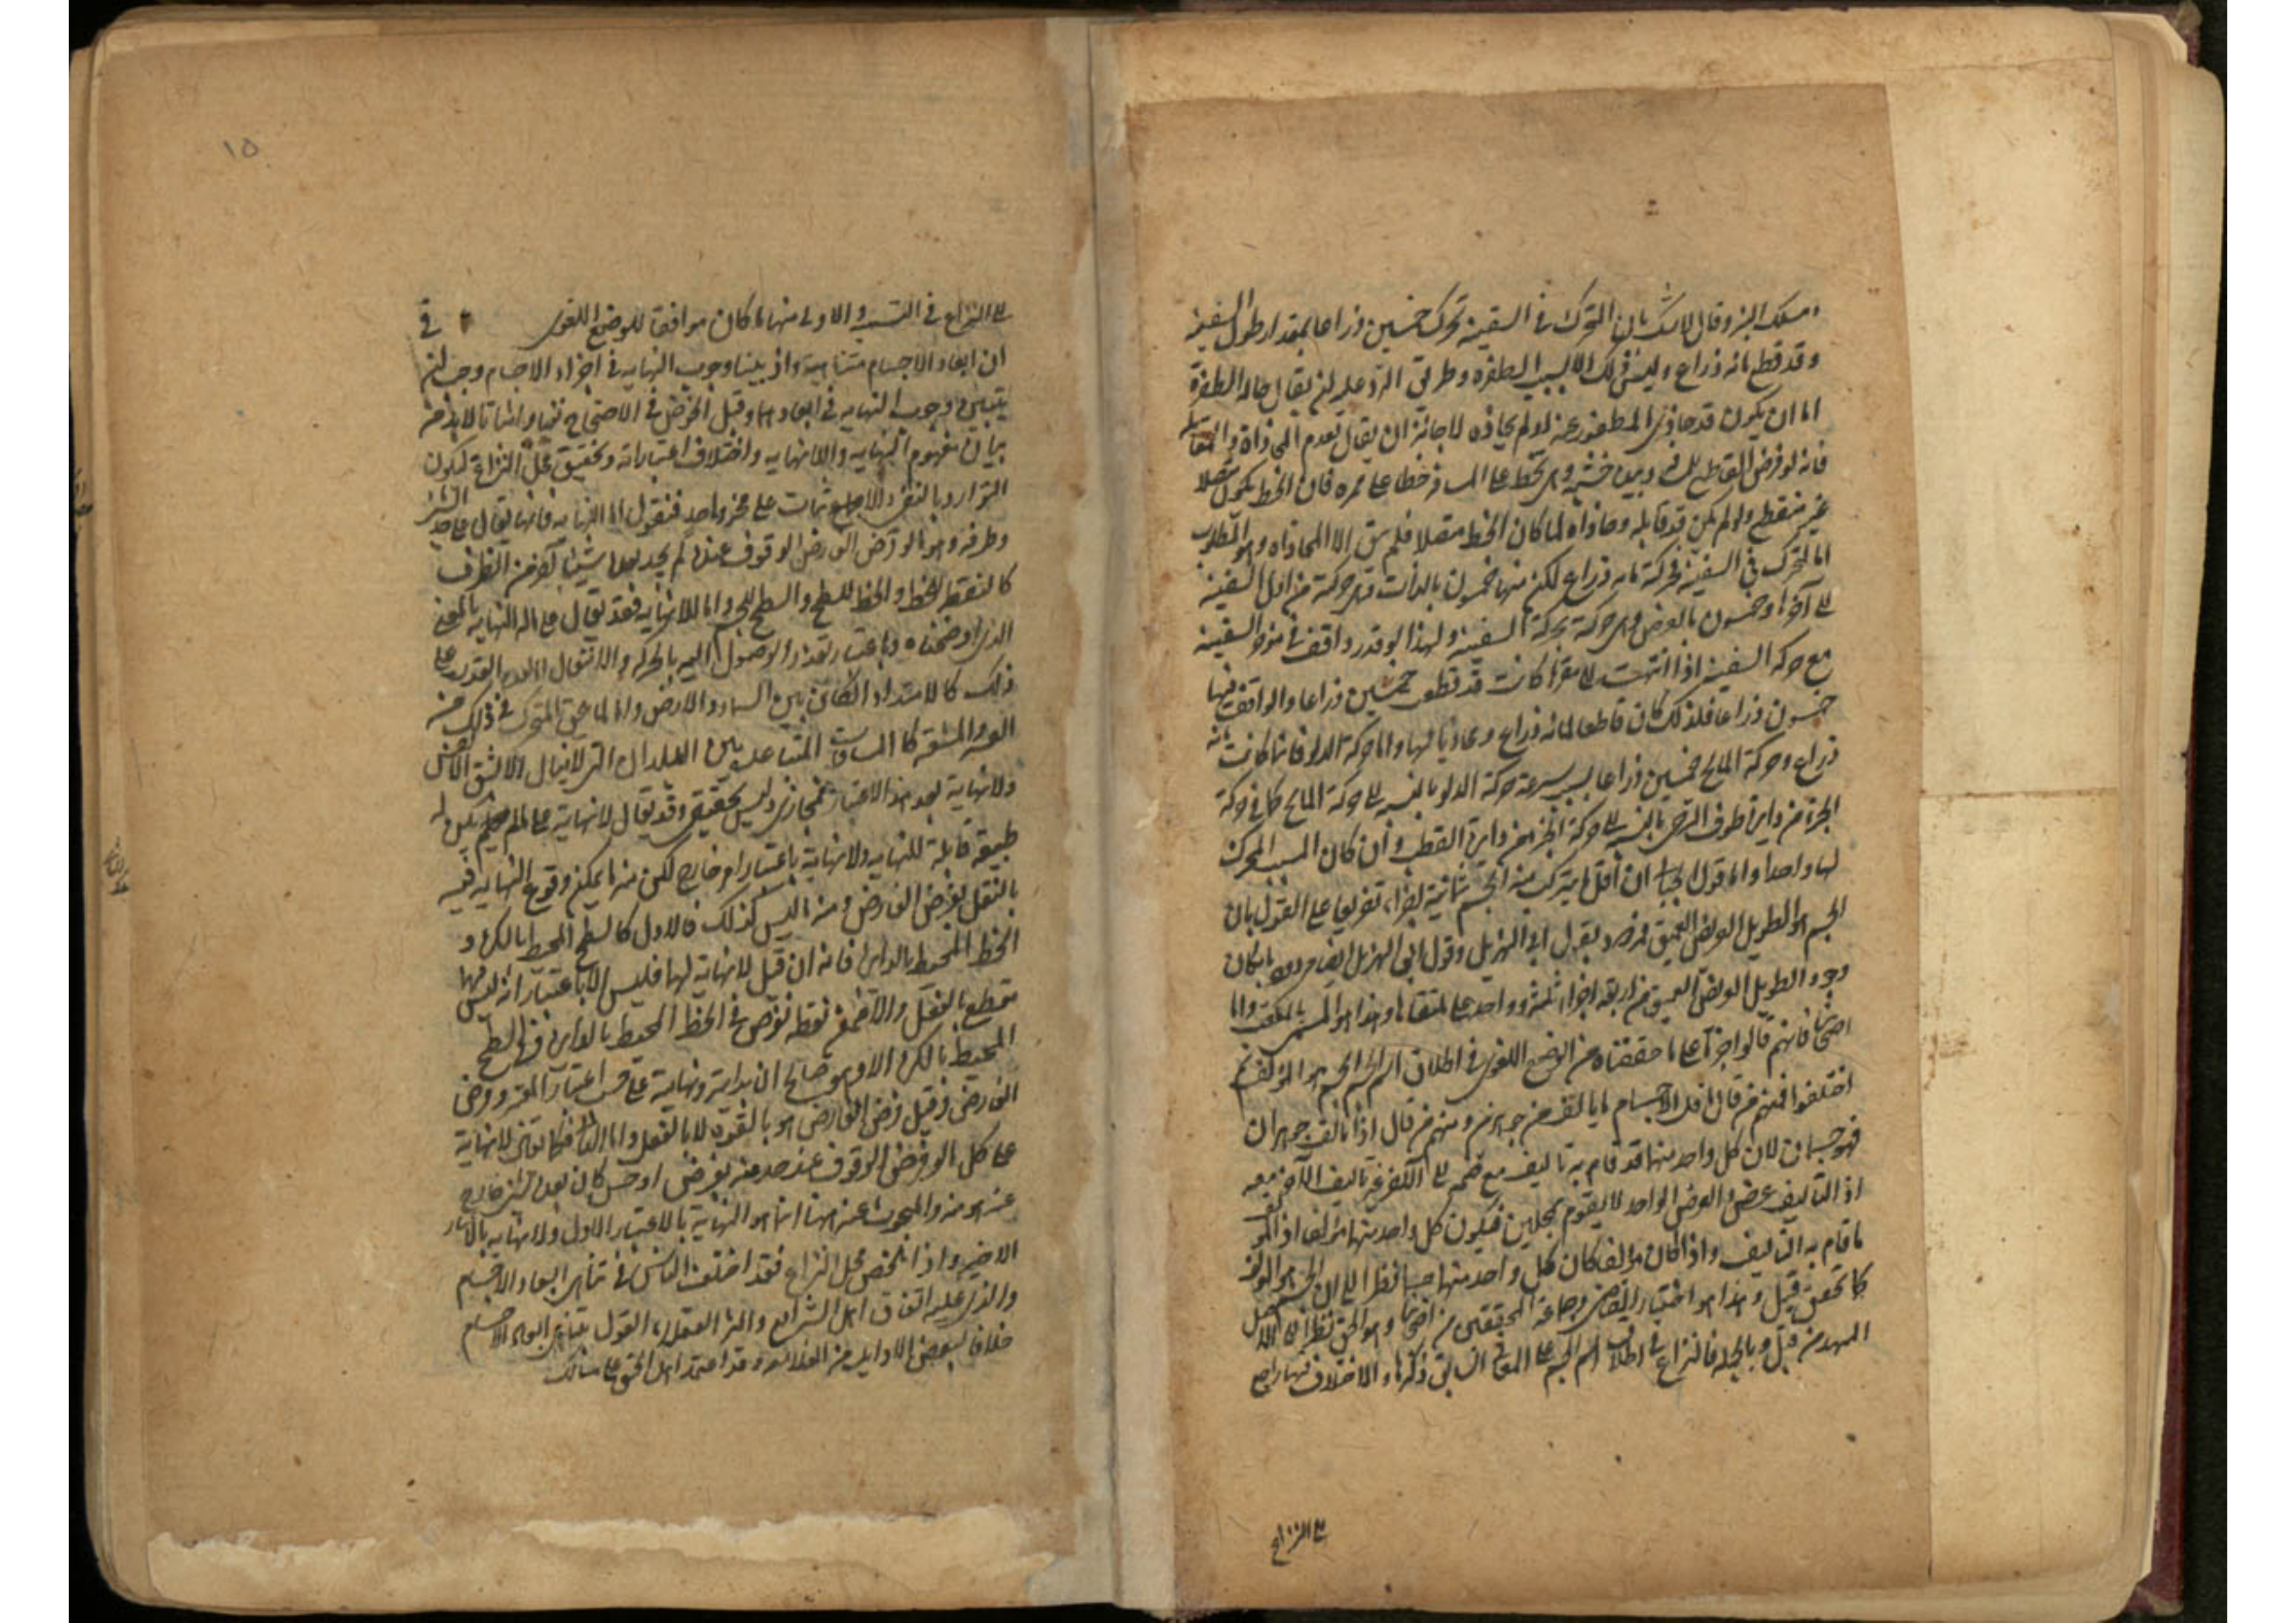 ومسلك البئر وقال لا شك بان المتحرك في السفينة تحرك خمسين ذراعا بمقدار طول السفينه
وقد قطع مائه ذراع وليس ذلك الا لسبب الطفره وطريق الرد عليه ان يقال حاله الطفرة
اما ان يكون قد حاذى المطفور عنه او لم يحاذه لا جائز ان يقال بعدم المحاذاة والمقابله
فانه لو فرض القاطع لذلك وبيده خشبه وهى تخط على المسافه خطا على ممره فان الخط يكون متصلا
غير منقطع ولو لم يكن قد قابله وحاذاه لما كان الخط متصلا فلم يبق الا المحاذاه وهو المطلوب
اما المتحرك في السفينه فحركته مايه ذراع لكن منها خمسون بالذات وهى حركته من اول السفينه
الى آخرها وخمسون بالعرض وهى حركته بحركة السفينه ولهذا لو قدر واقف في مؤخر السفينه
مع حركه السفينه اذا انتهت الى مقرها كانت قد قطعت خمسين ذراعا والواقف فيها
خمسون ذراعا فلذلك كان قاطعا لمائه ذراع ومحاذيا لها واما حركة الدلو فانما كانت مائه
ذراع وحركة المايح خمسين ذراعا بسبب سرعة حركة الدلو بالنسبه الى حركة المايح كما في حركة
الجزء من دايرة طوق الرحى بالنسبه الى حركة الجزء من دايرة القطب وان كان المسبب المحرك
لها واحدا واما قول الجبائي ان اقل ما يتركب منه الجسم ثمانية اجزاء تفريعا على القول بان
الجسم هو الطويل العريض العميق فمردود بقول ابي الهذيل وقول ابي الهذيل ايضا مردود بامكان
وجود الطويل العريض العميق من اربعه اجزاء ثلثة وواحد على ملتقاها وهذا هو المسمى بالمكعب واما
اصحابنا فانهم قالوا جريا على ما حققناه من الوضع اللغوى في اطلاق اسم الجسم الجسم هو المؤلف ثم
اختلفوا فمنهم من قال اقل الاجسام ما يالف من جوهرين ومنهم من قال اذا تالف جوهران
فهو جسمان لان كل واحد منهما قد قام به تاليف مع ضمه الى الاخر غير تاليف الآخر معه
اذ التاليف عرض والعرض الواحد لا يقوم بمحلين فيكون كل واحد منهما مؤلفا اذ المؤلف
ما قام به التاليف واذا كان مؤلفا كان كل واحد منهما جسما نظرا الى ان الجسم هو المؤلف
كما تحقق قبل وهذا هو اختيار القاضى وجماعة المحققين من اصحابنا وهو الحق نظرا الى الاصل
الممهد من قبل وبالجمله فالنزاع في اطلاق اسم الجسم على المعانى السابق ذكرها والاختلاف فيها راجع
الى النزاع
الى النزاع في التسميه والاولى منها ما كان موافقا للوضع اللغوى في
ان ابعاد الاجسام متناهية واذ بينا وجوب النهايه في اجزاء الاجسام وجب ان
يتبين وجوب النهايه في ابعادها وقبل الخوض في الاحتجاج نفيا واثباتا لابد من
بيان مفهوم النهايه واللانهايه واختلاف اعتباراته وتحقيق محل النزاع ليكون
التوارد بالنفي والاثبات على محز واحد فنقول اما النهايه فانها تقال على حد الشئ
وطرفه وهو ما لو فرض الفارض الوقوف عنده لم يجد بعده شيئا آخر من الطرف
كالنقطه للخط والخط للسطح والسطح للجسم واما اللانهايه فقد يقال على ما له النهايه بالمعنى
الذى اوضحناه وباعتبار تعذر الوصول اليه بالحركه والانتقال اما لعدم القدره على
ذلك كالامتداد الكائن بين السماء والارض واما لما يلحق المتحرك في ذلك من
العسر والمشقه كالمسافات المتباعده بين البلدان التى لا تنال الا بشق الانفس
ولا نهاية بهذا الاعتبار مجازى وليس بحقيقى وقد يقال لا نهاية على ما لم يكن له
طبيعة قابلة للنهايه ولا نهاية باعتبار امر خارج لكن منه ما يمكن وقوع النهايه فيه
بالفعل بفرض الفارض ومنه ما ليس كذلك فالاول كالسطح المحيط بالكره و
الخط المحيط بالدايره فانه ان قيل لا نهاية لها فليس الا باعتبار انه ليس فيها
مقطع بالفعل والا فما من نقطه تفرض في الخط المحيط بالدايره او في السطح
المحيط بالكره الا وهو صالح ان بداية ونهاية على حسب اعتبار المعتبر وفرض
الفارض وقبل فرض الفارض هو بالقوة لا بالفعل واما الثانى فكما تعنى لا نهاية
على كل ما لو فرض الوقوف عند حد منه بفرض او حس كان بعده شئ خارج
عنه هو منه والمبحوث عنه ههنا انما هو النهاية بالاعتبار الاول ولا نهايه بالاعتبار
الاخير واذا تلخص محل النزاع فقد اختلف الناس في تناهى ابعاد الاجسام
والذى عليه اتفاق اهل الشرايع واكثر العقلاء القول بتناهى ابعاد الاجسام
خلافا لبعض الاوايل من الفلاسفه وقد اعتمد اهل الحق على مسالك
١٥